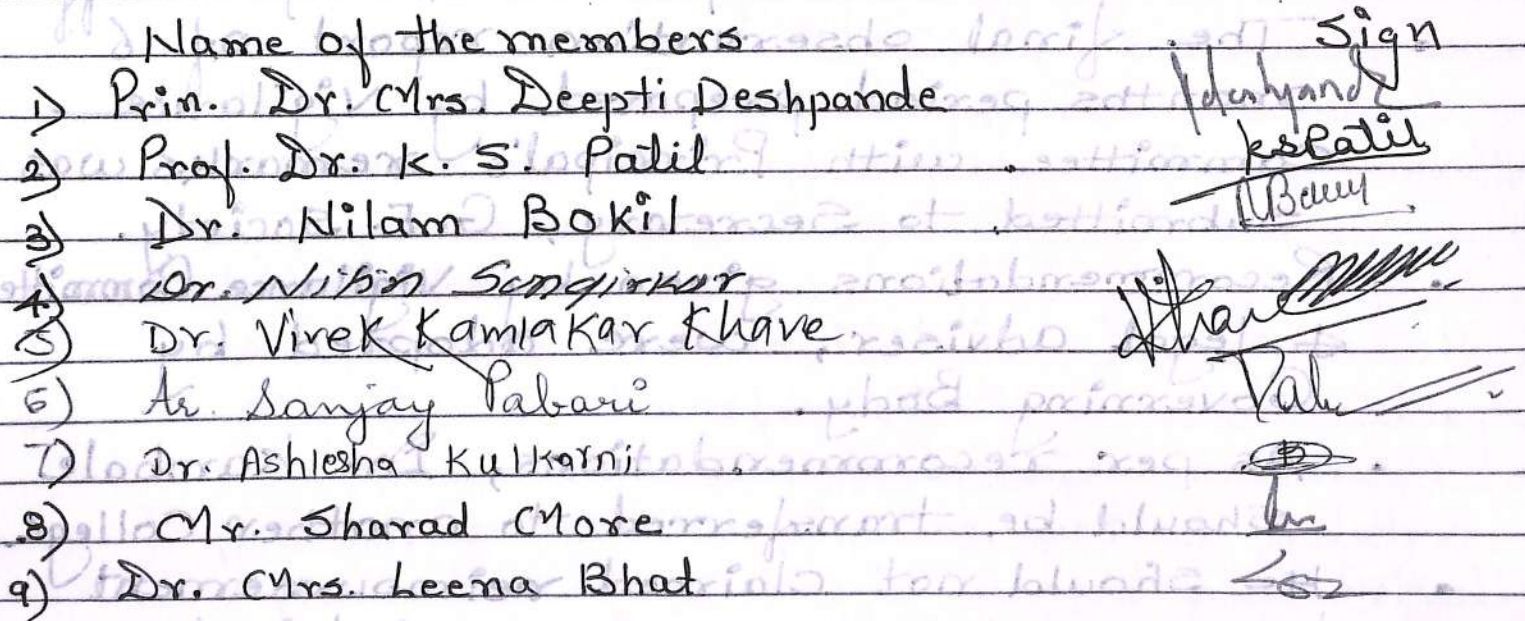 Name of the members Sign
1) Prin. Dr. Mrs. Deepti Deshpande
2) Prof. Dr. K. S. Patil kspatil
3) Dr. Nilam Bokil
4) Dr. Nitin Sangirkar
5) Dr. Vivek Kamlakar Khave
6) Ar. Sanjay Pabari
7) Dr. Ashlesha Kulkarni
8) Mr. Sharad More
9) Dr. Mrs. Leena Bhat